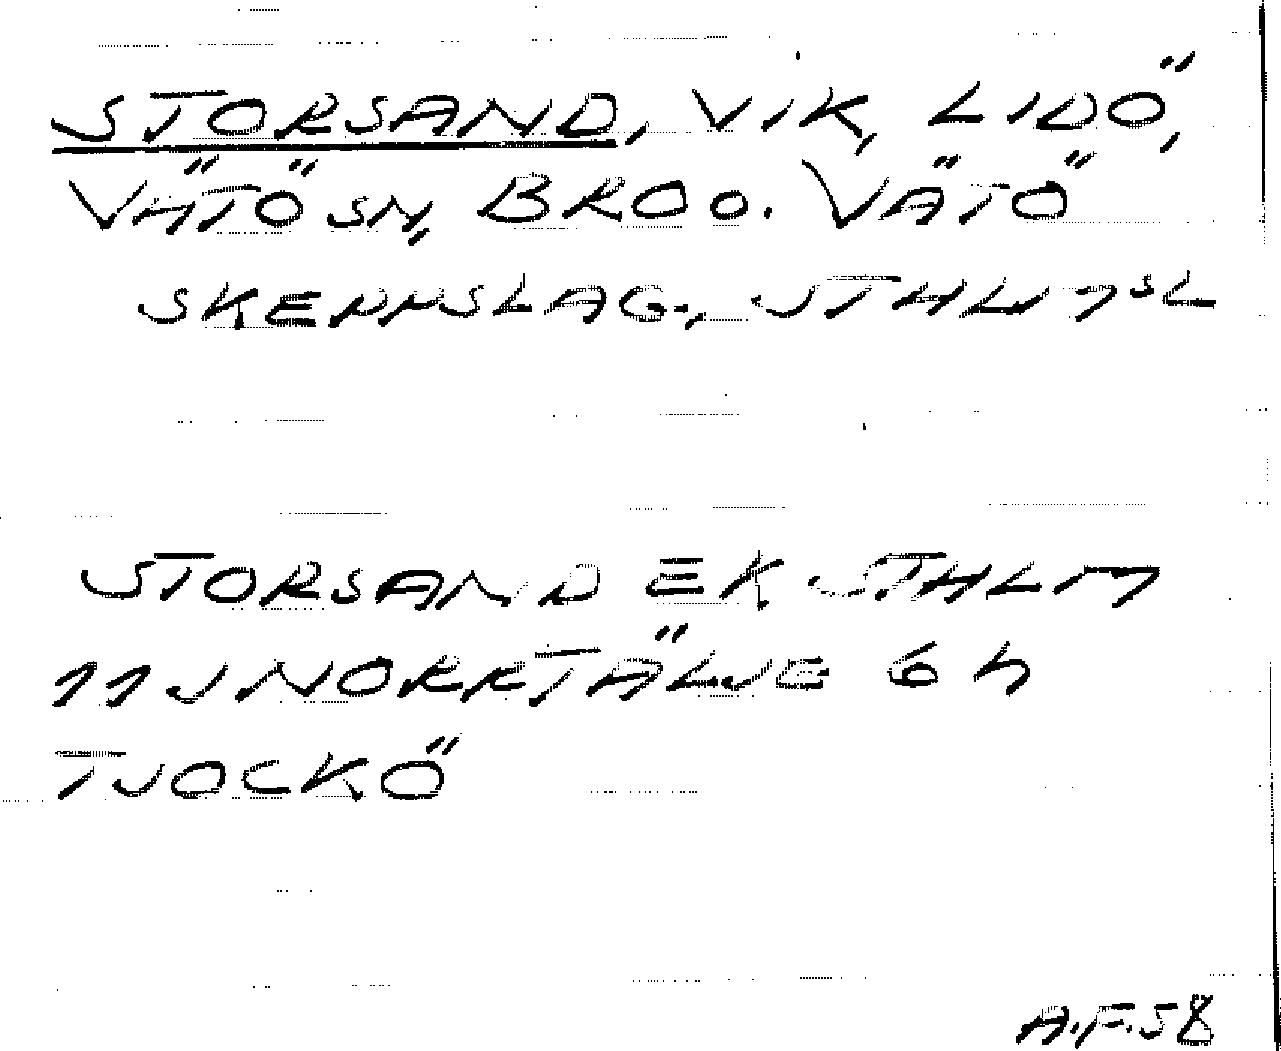 STORSAND, VIK, LIDÖ,
VÄTÖ SN, BRO O. VÄTÖ
SKEPPSLAG., STHLMS L
STORSAND EK STHLM
11J NORRTÄLJE 6 h
TJOCKÖ
A.F.58